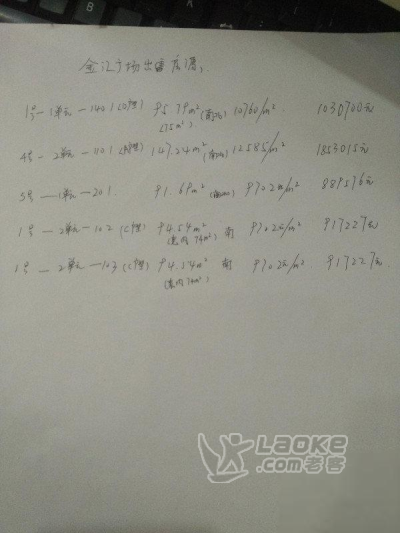 金汇广场出售房源:
1号-1单元-1401(C户型) 95.79m² (南北) 10760/m². 1030700元
(75m²)
4号-2单元-1101(A户型) 147.24m² (南北) 12585/m² 1853015元
5号-1单元-201. 91.69m² 9702元/m² 889576元
1号-2单元-102(C户型) 94.54m² 南 9702元/m² 917227元
(套内74m²)
1号-2单元-103(C户型) 94.54m² 南 9702元/m² 917227元
(套内74m²)
LAOKE
.com老客